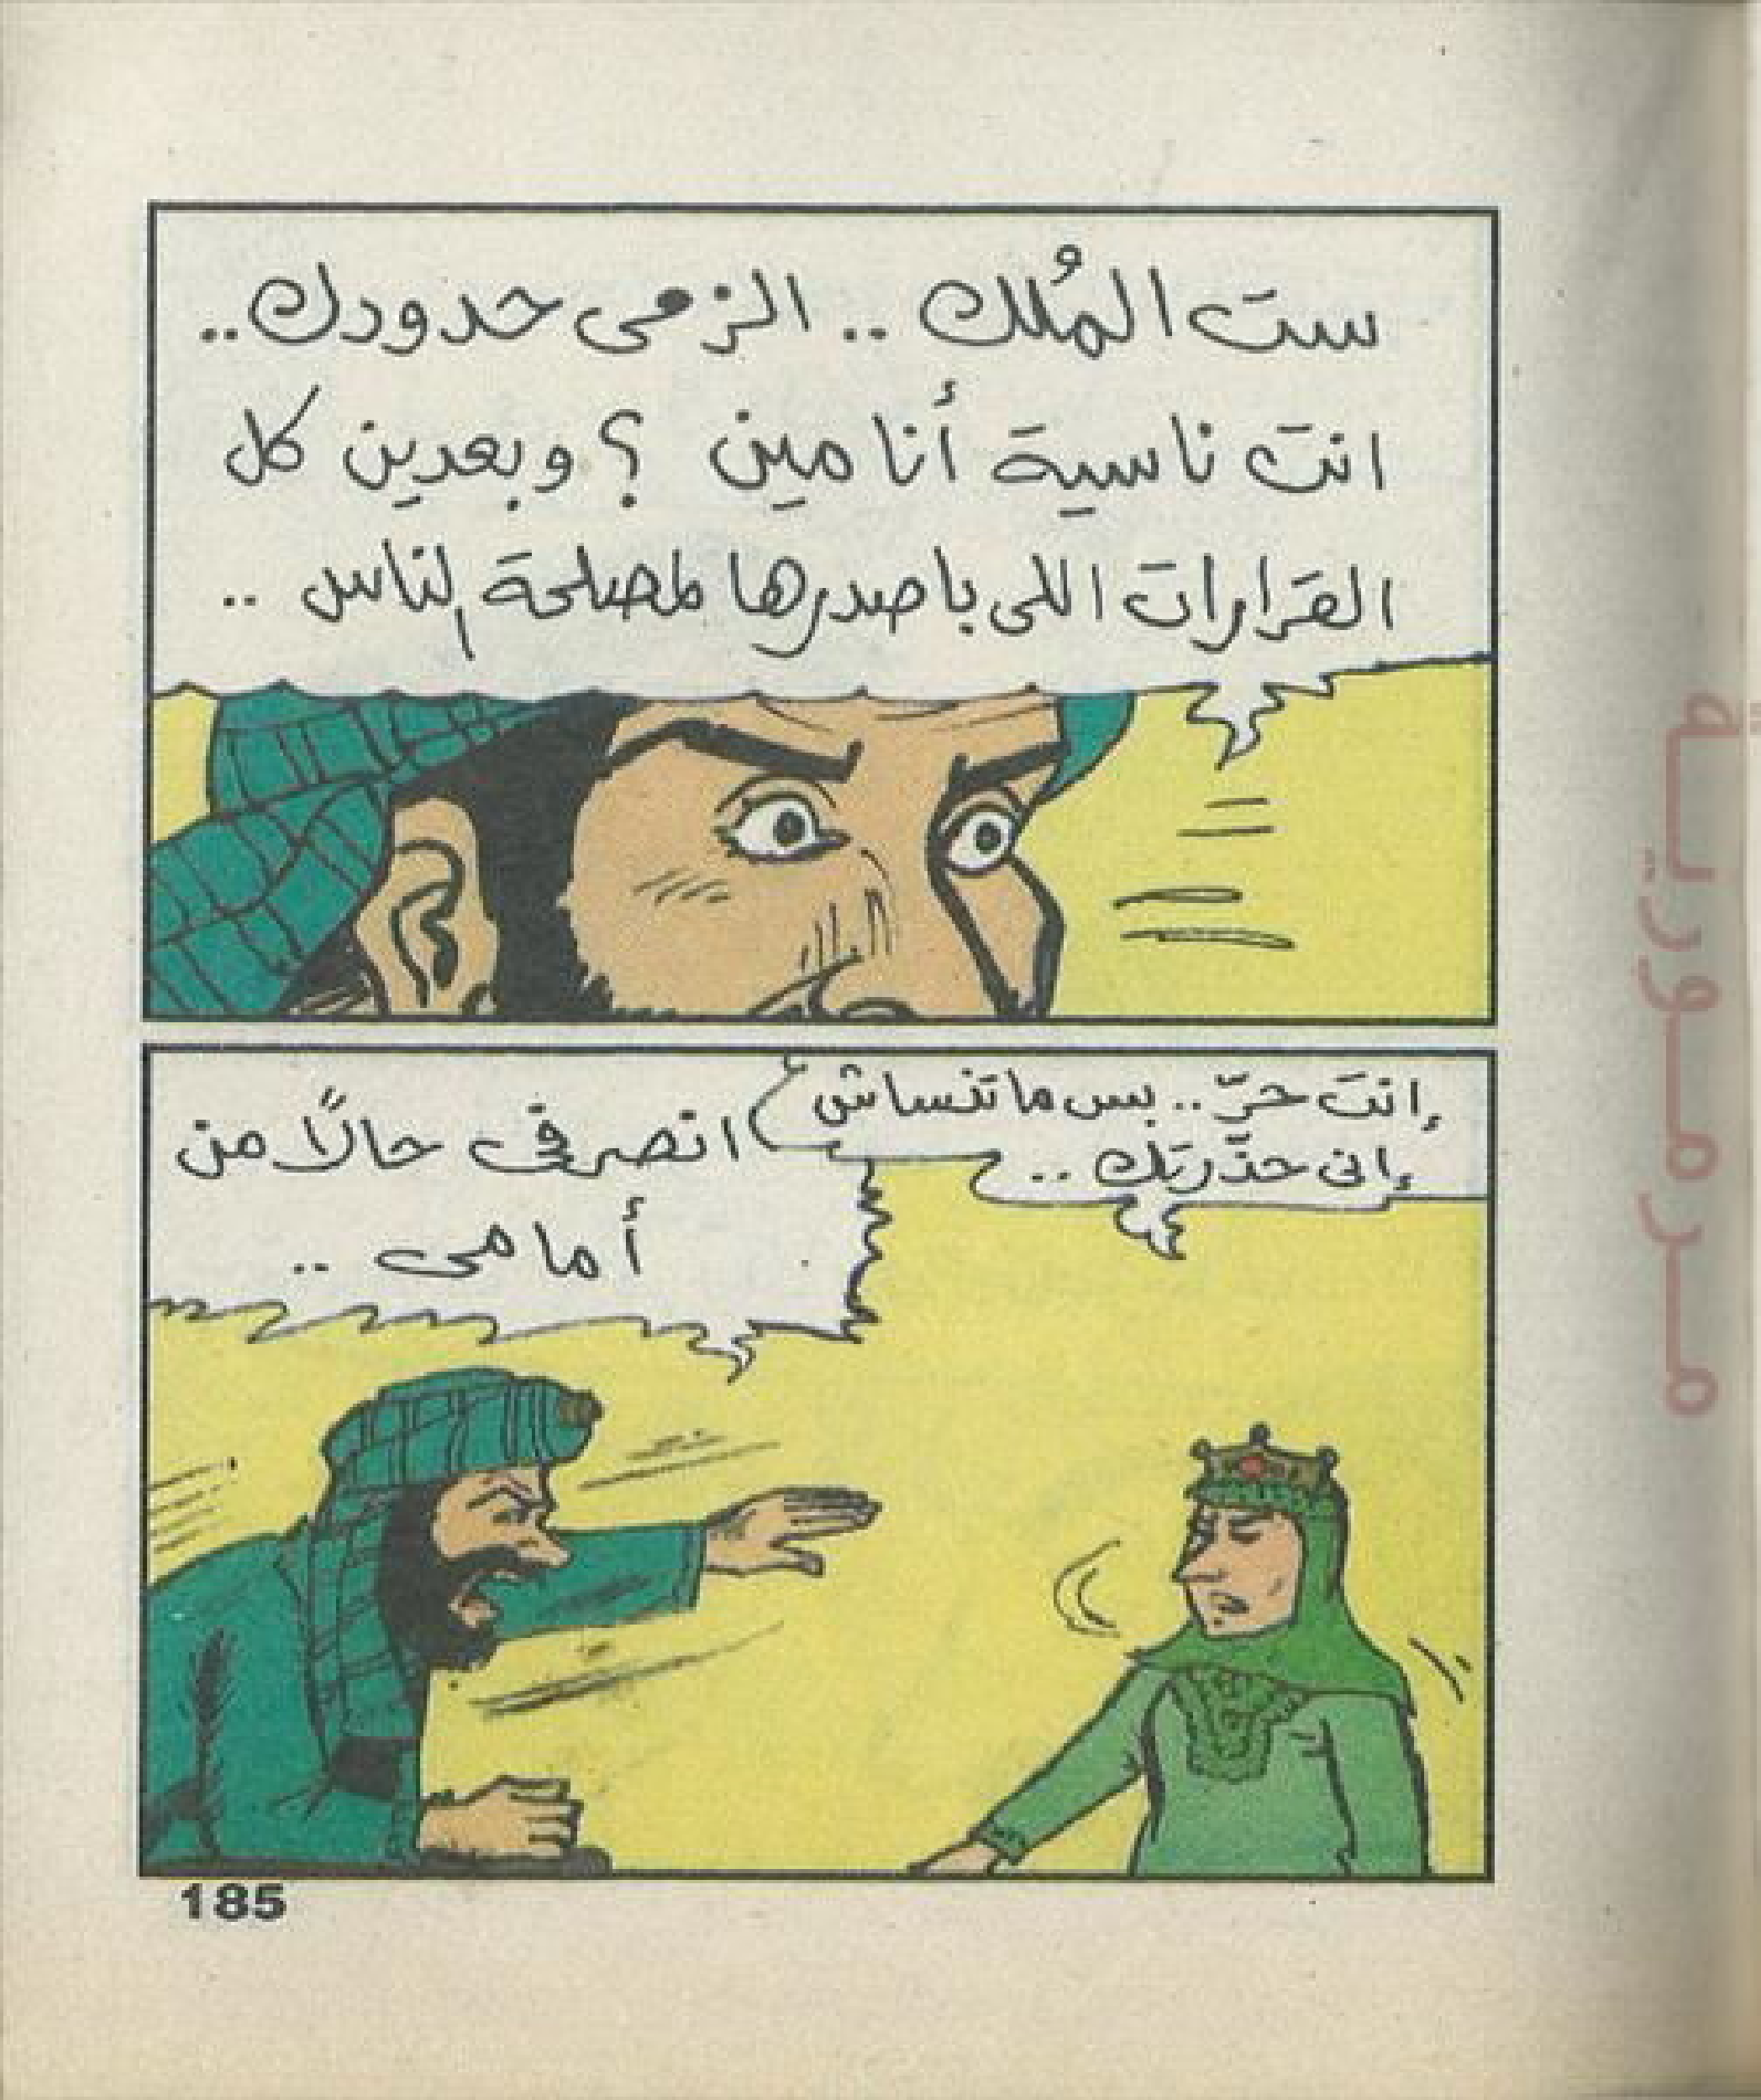 ست المُلك .. الزمى حدودك ..
انت ناسية أنا مين ؟ وبعدين كل
القرارات اللى باصدرها لمصلحة الناس ..
إنت حرّ .. بس ماتنساش
إنى حذّرتك ..
انصرفى حالاً من
أمامى ..
185
مرمورية